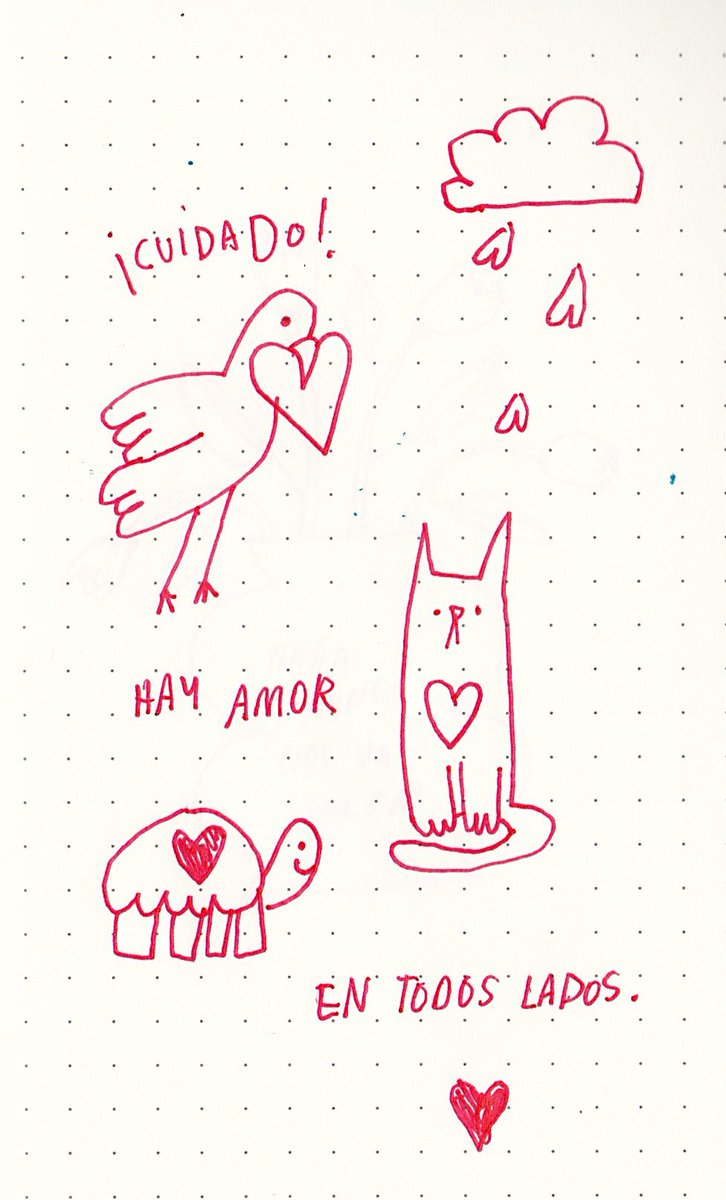 ¡CUIDADO!
HAY AMOR
EN TODOS LADOS.